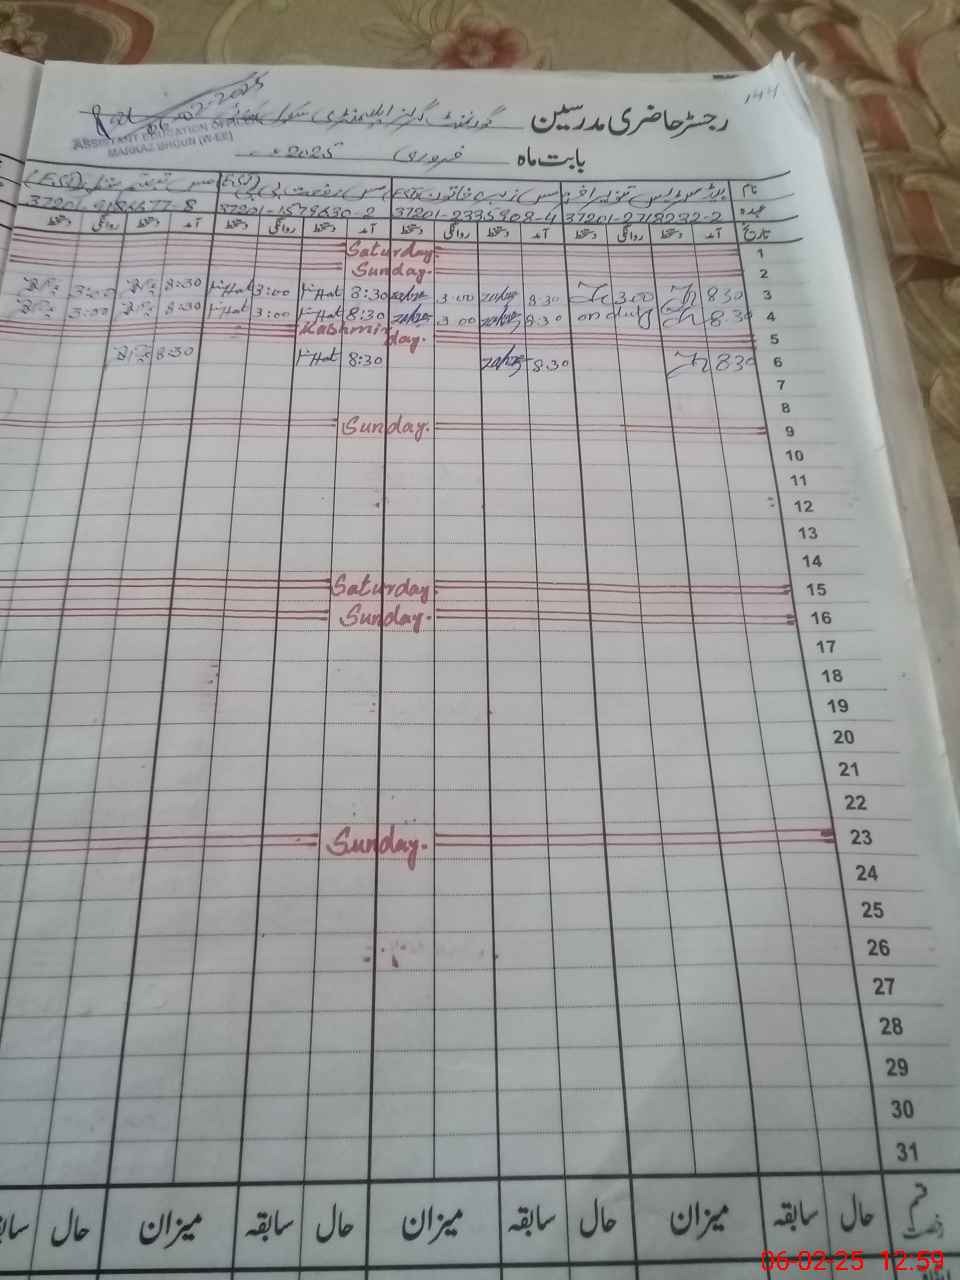 144
رجسٹر حاضری مدرسین گورنمنٹ گرلز ایلیمنٹری سکول
02-2025
ASSISTANT EDUCATION OFFICER
MARKAZ BHOUN (W-EE)
بابت ماہ فروری 2025ء
نام
عہدہ 37201-2718232-2 37201-2335908-4 37201-1579630-2 37201-9186677-8
تاریخ آمد دستخط روانگی دستخط آمد دستخط روانگی دستخط آمد دستخط روانگی دستخط آمد دستخط روانگی دستخط
1 Saturday.
2 Sunday.
3 8:30 3:00 8:30 3:00 8:30 3:00 8:30 3:00
4 8:30 on duty 8:30 3:00 8:30 3:00 8:30 3:00
5 Kashmir day.
6 8:30 8:30 8:30 8:30
7
8
9 Sunday.
10
11
12
13
14
15 Saturday.
16 Sunday.
17
18
19
20
21
22
23 Sunday.
24
25
26
27
28
29
30
31
قسم رخصت حال سابقہ میزان حال سابقہ میزان حال سابقہ میزان حال
06-02-25 12:59